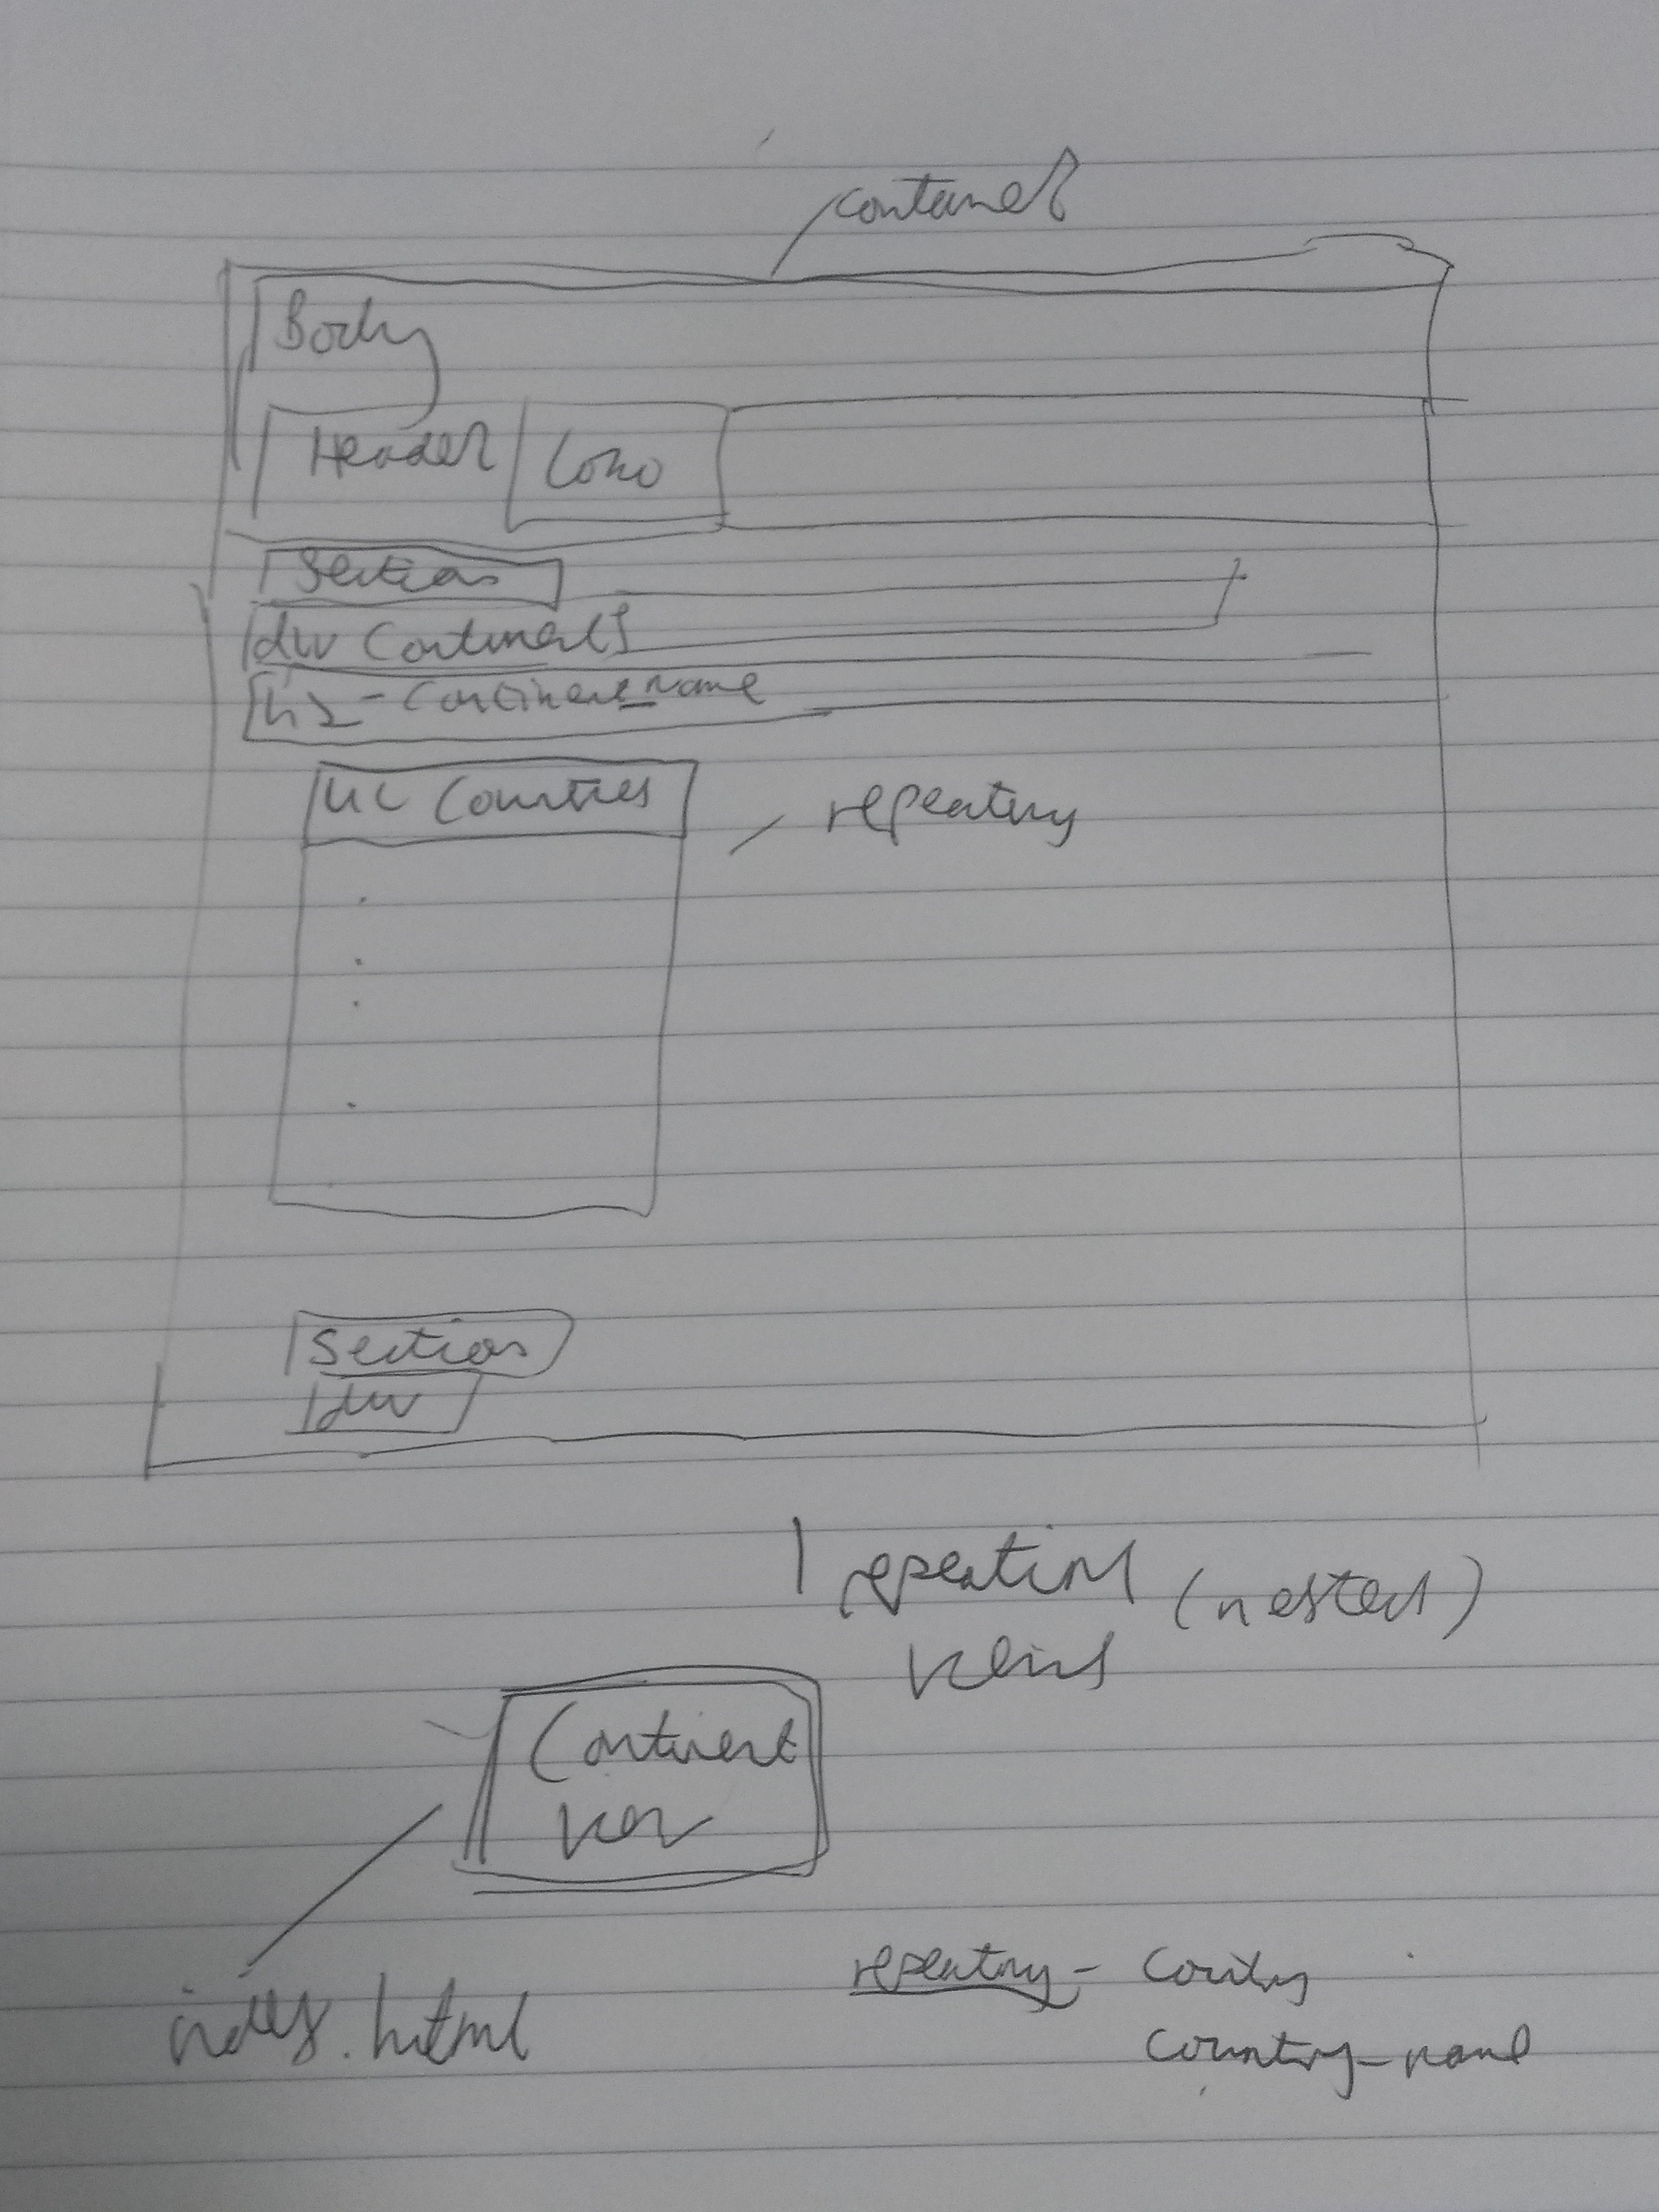 container
Body
Header Logo
Section
div Continents
h2 - Continent_name
UL Countries
repeating
Section
div
repeating (nested)
Continent
view
index.html
repeating - Country
country_name